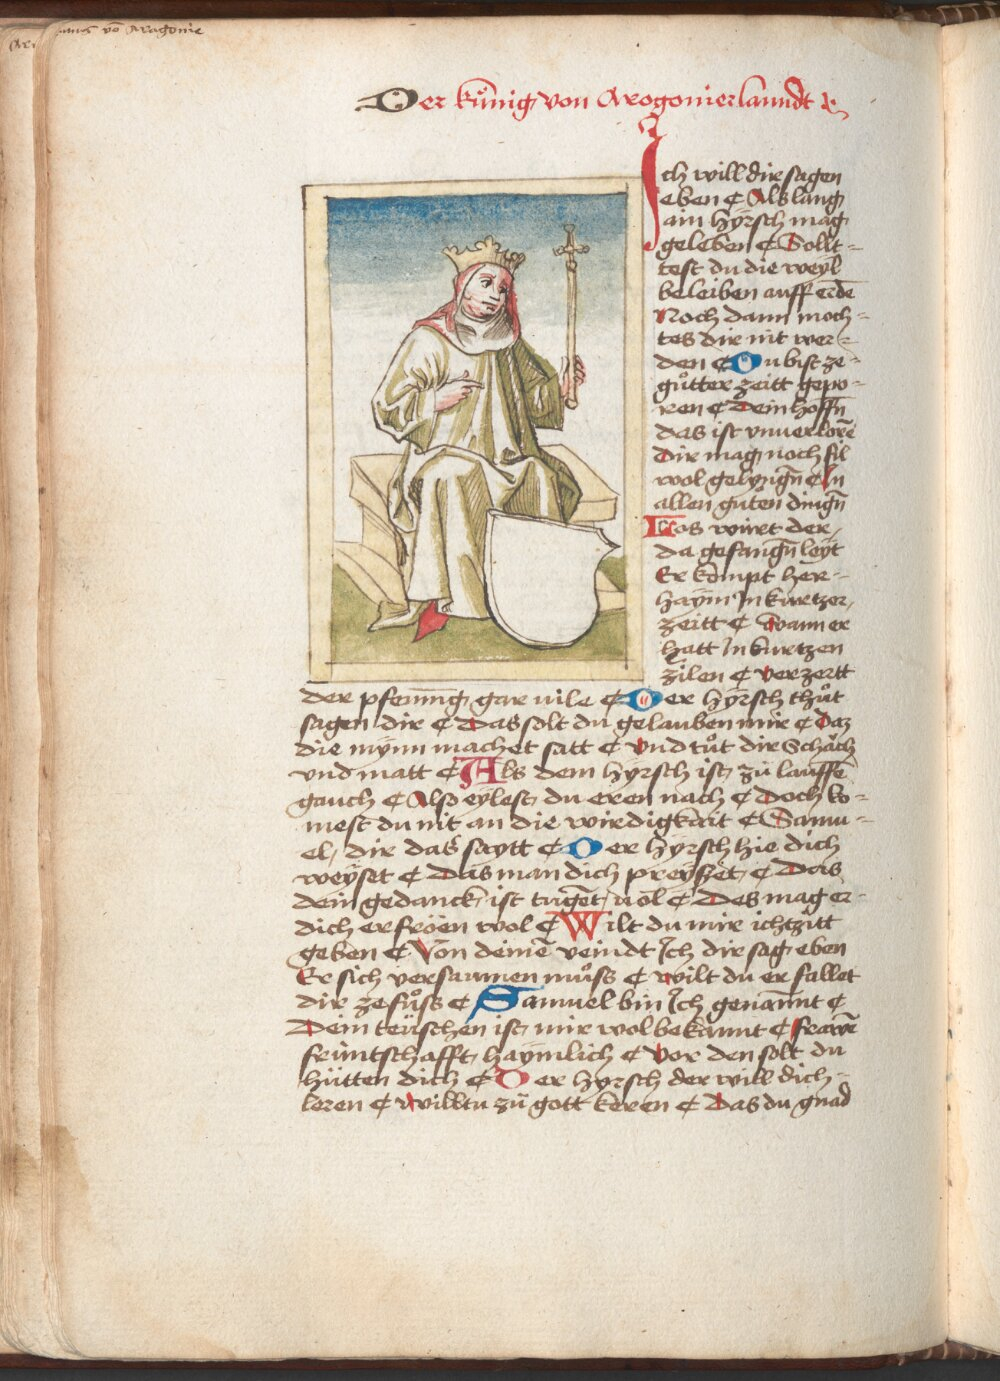 vō Aragonie
Der kűnig von Arogonierlanndt ꝛc
Ich will dir sagen
eben ¶ Als lang
ain hÿrsch mag
geleben ¶ Sollt=
test du die weyl
beleiben auff erdē
Noch dann moch=
tes dir nit wer=
den ¶ Du bist ze=
gůtter zeitt gepo=
ren ¶ Dein hoffn̄
das ist vnuerlorē
Dir mag noch fil
wol gelyngn̄ ¶ In
allen gůten dingn̄
Was würt der
da gefangn̄ leyt
Er kompt her=
haÿm In kurtzer
zeitt ¶ wann er
hatt In kurtzen
zilen ¶ verzertt
der pfening gar vile ¶ Der hÿrsch thůt
sagen dir ¶ Das solt du gelauben mir ¶ Daz
die mÿnn machet satt ¶ Vnd tůt dir Schach
vnd matt ¶ Als dem hÿrsch ist zů lauffē
gauch ¶ Also eylest du eren nach ¶ Doch ko=
mest du nit an die wirdigkait ¶ Samu=
el dir das saytt ¶ Der hÿrsch hie dich
weyset ¶ Das man dich preyset ¶ Das
dein gedanck ist tugēt vol ¶ Des mag er=
dich erfröen wol ¶ Wilt du mir ichtzitt
geben ¶ Von deinē veindt Ich dir sag eben
Er sich versaumen můss ¶ wilt du er fallet
dir ze fůss ¶ Samuel bin Ich genannt ¶
Dein teüschen ist mir wol bekannt ¶ frawē
freuntschafft haÿmlich ¶ Vor den solt du
hütten dich ¶ Der hÿrsch der will dich=
leren ¶ willtu zů gott keren ¶ Das du gnad